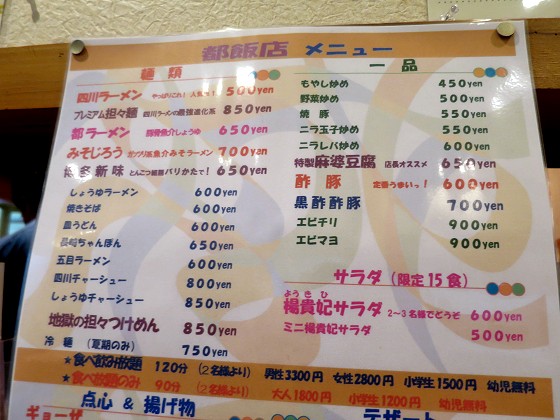 都飯店 メニュー
麺類
四川ラーメン やっぱりこれ！人気No.1 500yen
プレミアム担々麺 四川ラーメンの最強進化系 850yen
都ラーメン 豚骨魚介しょうゆ 650yen
みそじろう ガツリ系魚介みそラーメン 700yen
博多新味 とんこつ細麺バリかたで！ 650yen
しょうゆラーメン 600yen
焼きそば 600yen
皿うどん 600yen
長崎ちゃんぽん 650yen
五目ラーメン 600yen
四川チャーシュー 800yen
しょうゆチャーシュー 850yen
地獄の担々つけめん 850yen
冷麺 （夏期のみ） 750yen
一品
もやし炒め 450yen
野菜炒め 500yen
焼豚 550yen
ニラ玉子炒め 550yen
ニラレバ炒め 600yen
特製麻婆豆腐 店長オススメ 650yen
酢豚 定番うまいっ！ 600yen
黒酢酢豚 700yen
エビチリ 900yen
エビマヨ 900yen
サラダ（限定15食）
ようきひ
楊貴妃サラダ 2〜3名様でどうぞ 600yen
ミニ楊貴妃サラダ 500yen
★食べ飲み放題 120分 （2名様より） 男性3300円 女性2800円 小学生1500円 幼児無料
★食べ放題のみ 90分 （2名様より） 大人1800円 小学生1200円 幼児無料
点心 & 揚げ物
ギョーザ
デザート